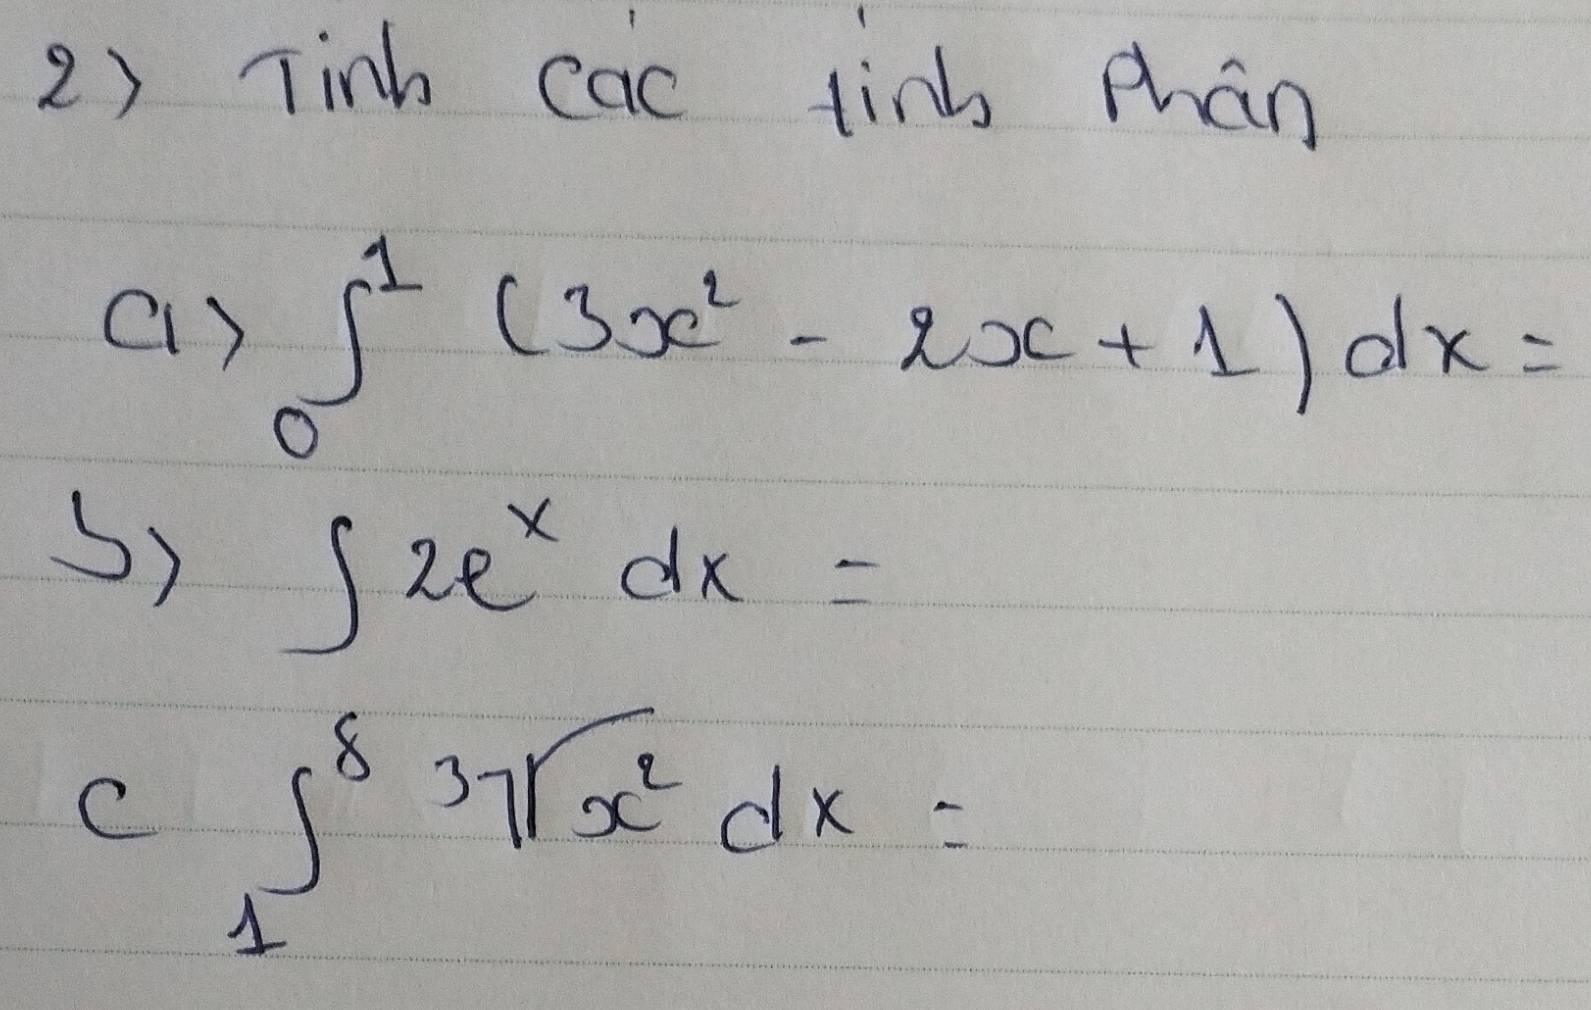 2) Tính các tính Phân
a) ∫₀¹ (3x² - 2x + 1) dx =
b) ∫ 2eˣ dx =
c ∫₁⁸ ³√x² dx =